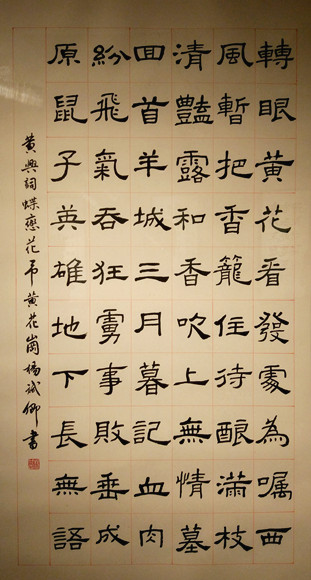 轉眼黃花看發處為囑西
風暫把香籠住待釀滿枝
清豔露和香吹上無情墓
回首羊城三月暮記血肉
紛飛氣吞狂虜事敗垂成
原鼠子英雄地下長無語
黃興詞蝶戀花弔黃花崗楊卿書